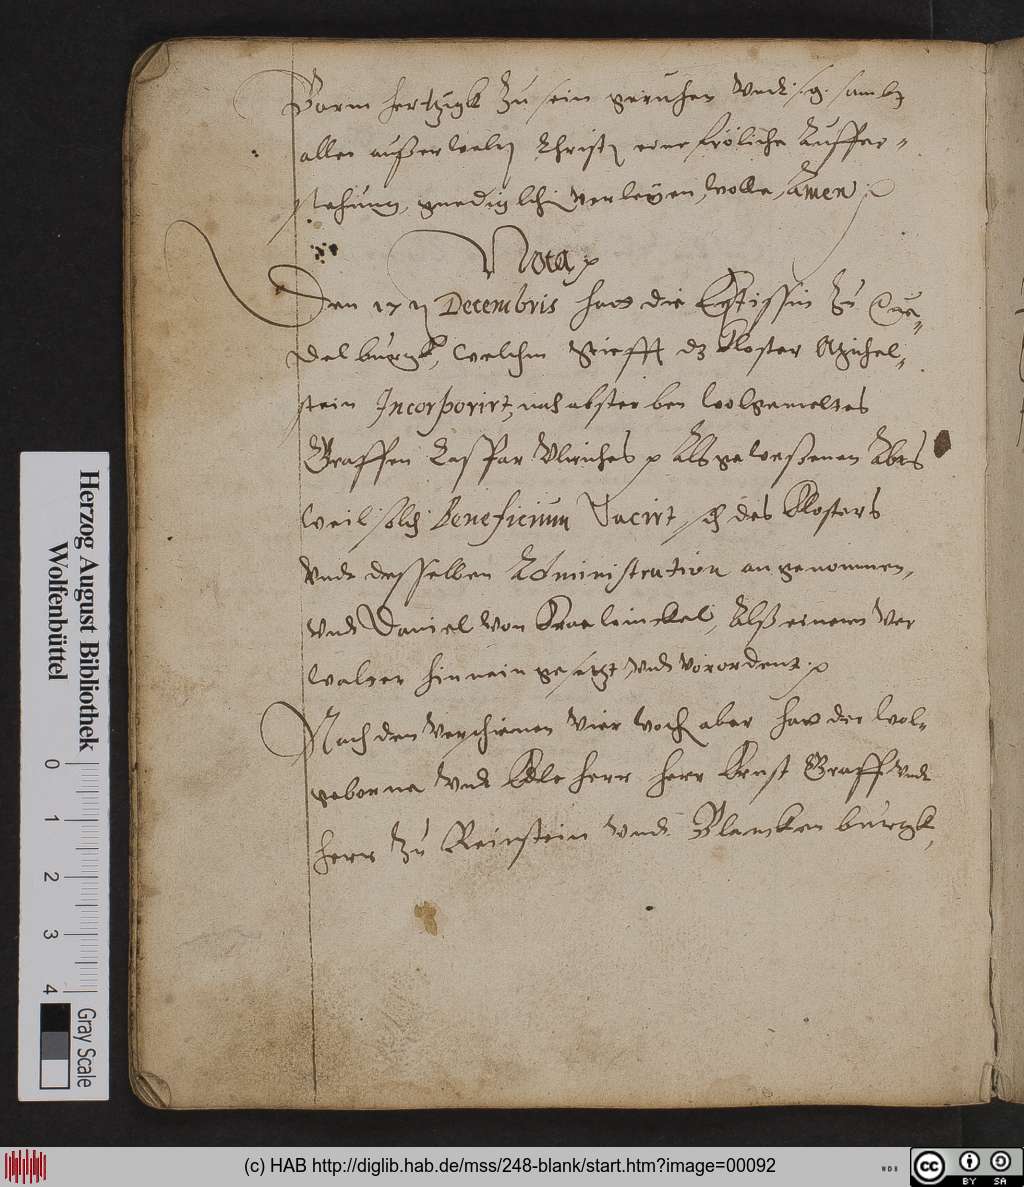 Barm hertzigk zu sein geruhen Undt s. g. sambt
allen außerwelt Christ eine fröliche Auffer-
stehung, gnediglich verleyen, wolle, Amen
Nota
Den 17 Decembris hatt die Eptissin zu Que-
delburgk, welchem Stiefft dz Kloster Michel-
stein Incorporirt, nach absterben wolgemeltes
Graffen Casspar Ulriches p Als geweßenen Abts
weil solch Beneficium Vacirt, sich des Klosters
Undt desselben Administration angenommen,
undt Daniel von, Alß einem Ver
walter hinnein gesetzt, undt verordent
Nach den verschienen vier woch aber hatt der Wol-
geborne undt Edle herr herr Ernst Graff undt
herr zu Reinstein undt Blanckenburgk,
Herzog August Bibliothek
Wolfenbüttel
0 1 2 3 4
Gray Scale
(c) HAB http://diglib.hab.de/mss/248-blank/start.htm?image=00092
WDB
cc BY SA